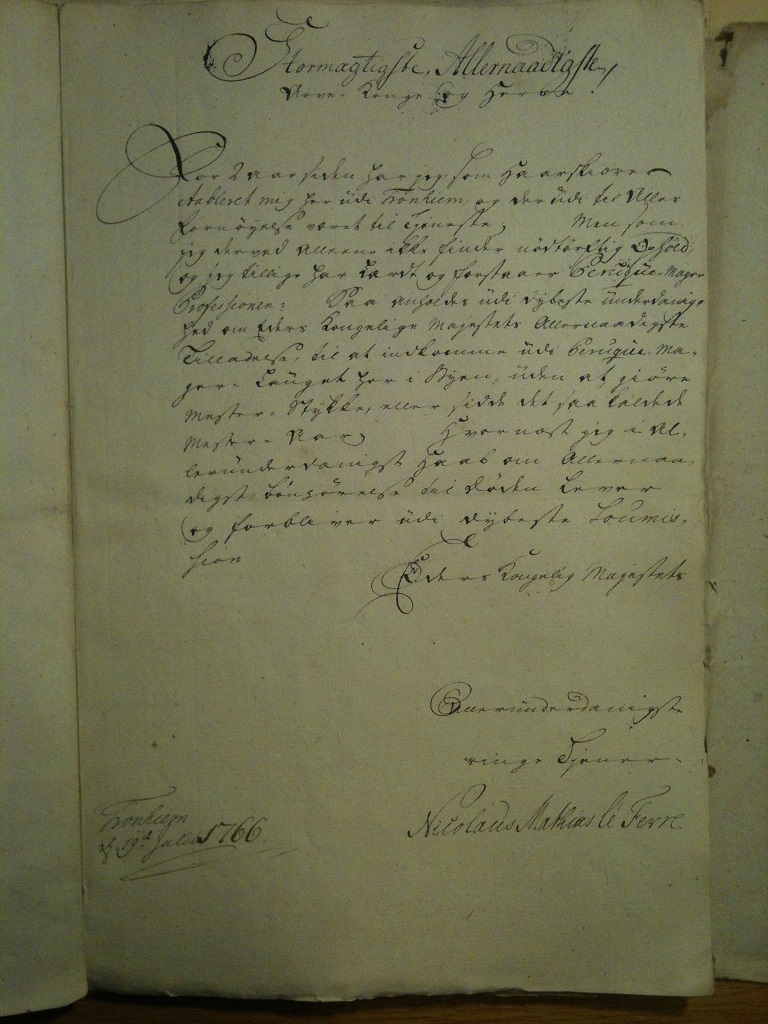 Stormagtigste, Allernaadigste
Arve- Konge og Herre!
For 2 aar siden har jeg som Haarskiærer
etableret mig her udi Tronhiem, og der udi til Alles
Fornöyelse været til Tieneste; Men som
jeg derved alleene ikke finder nödtörftig Ophold,
og jeg tillige har lærdt og forstaaer Peruque-Mager
Professionen: Saa anholdes udi dybeste underdanig-
hed om Eders Kongelige Majestets Allernaadigste
Tilladelse, til at indkomme udi Peruque-Ma-
ger- Lauget her i Byen, uden at giöre
Mester- Stykke, eller sidde det saa kaldede
Mester- Aar; Hvornæst jeg i Al-
lerunderdanigst Haab om Allernaa-
digst bönhörelse til Döden lever
og forbliver udi dybeste Soumis-
sion
Eders Kongelig Majestets
Allerunderdanigste
ringe Tjener
Tronhiem
19de Julii 1766.
Nicolaus Mathias le Ferre